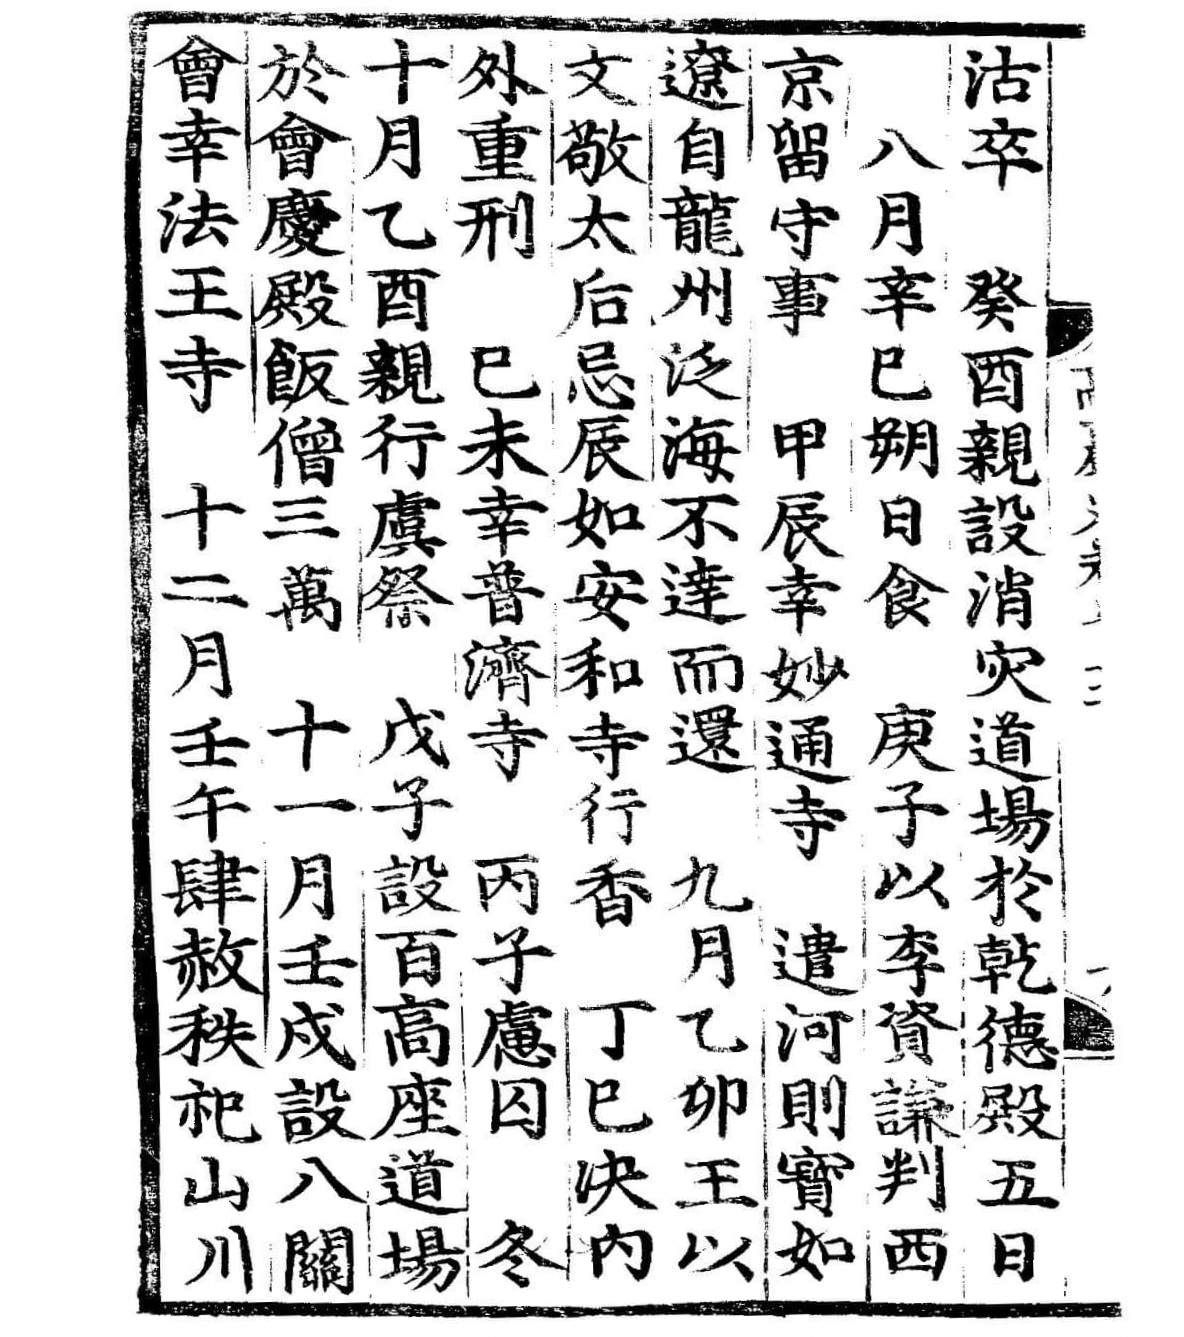 沽卒　癸酉親設消灾道場於乾德殿五日
八月辛巳朔日食　庚子以李資謙判西
京留守事　甲辰幸妙通寺　遣河則寶如
遼自龍州泛海不達而還　九月乙卯王以
文敬太后忌辰如安和寺行香　丁巳決内
外重刑　己未幸普濟寺　丙子慮囚　冬
十月乙酉親行虞祭　戊子設百高座道場
於會慶殿飯僧三萬　十一月壬戌設八關
會幸法王寺　十二月壬午肆赦秩祀山川